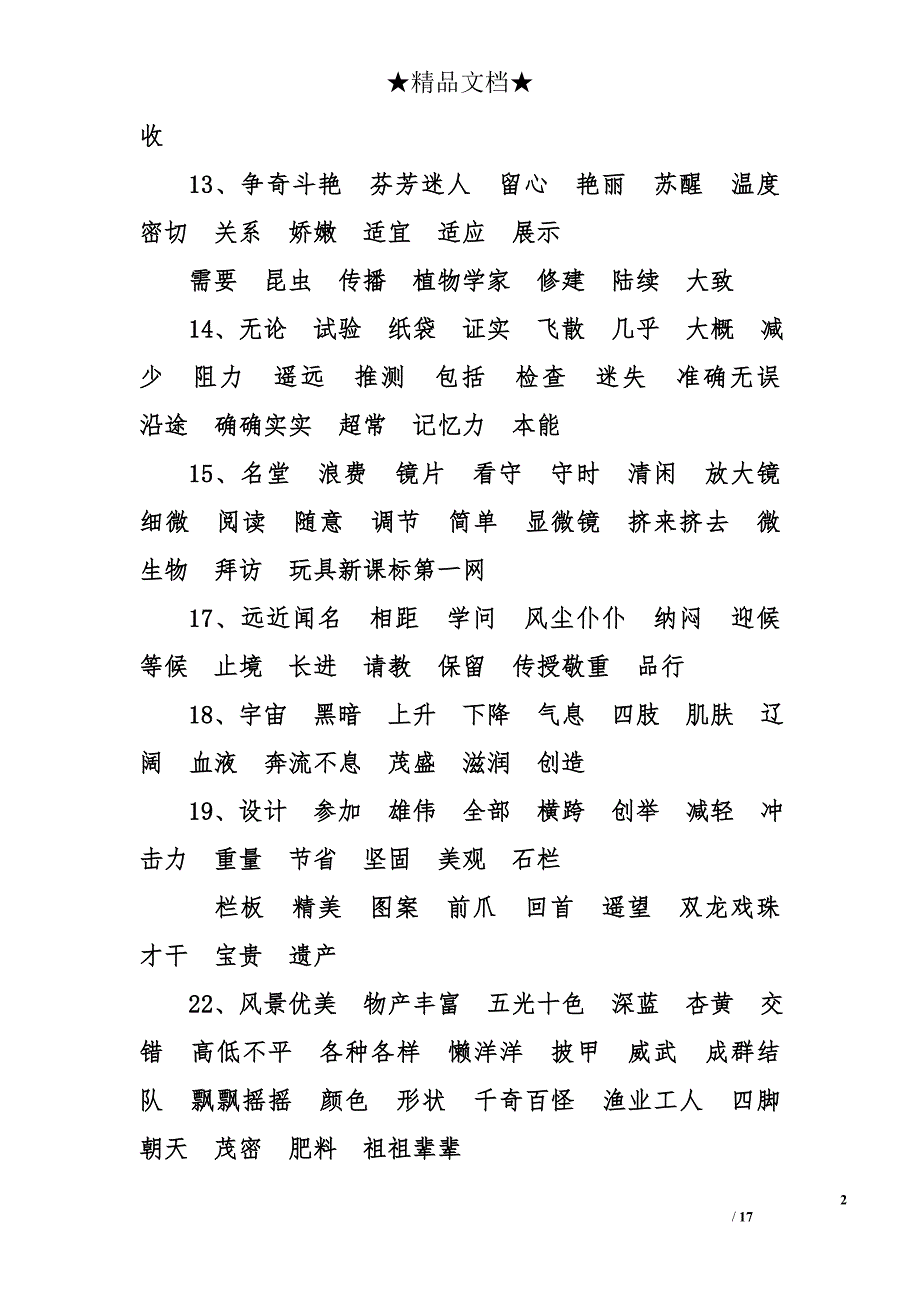 ★精品文档★
收
13、争奇斗艳 芬芳迷人 留心 艳丽 苏醒 温度
密切 关系 娇嫩 适宜 适应 展示
需要 昆虫 传播 植物学家 修建 陆续 大致
14、无论 试验 纸袋 证实 飞散 几乎 大概 减
少 阻力 遥远 推测 包括 检查 迷失 准确无误
沿途 确确实实 超常 记忆力 本能
15、名堂 浪费 镜片 看守 守时 清闲 放大镜
细微 阅读 随意 调节 简单 显微镜 挤来挤去 微
生物 拜访 玩具新课标第一网
17、远近闻名 相距 学问 风尘仆仆 纳闷 迎候
等候 止境 长进 请教 保留 传授敬重 品行
18、宇宙 黑暗 上升 下降 气息 四肢 肌肤 辽
阔 血液 奔流不息 茂盛 滋润 创造
19、设计 参加 雄伟 全部 横跨 创举 减轻 冲
击力 重量 节省 坚固 美观 石栏
栏板 精美 图案 前爪 回首 遥望 双龙戏珠
才干 宝贵 遗产
22、风景优美 物产丰富 五光十色 深蓝 杏黄 交
错 高低不平 各种各样 懒洋洋 披甲 威武 成群结
队 飘飘摇摇 颜色 形状 千奇百怪 渔业工人 四脚
朝天 茂密 肥料 祖祖辈辈
2
/ 17